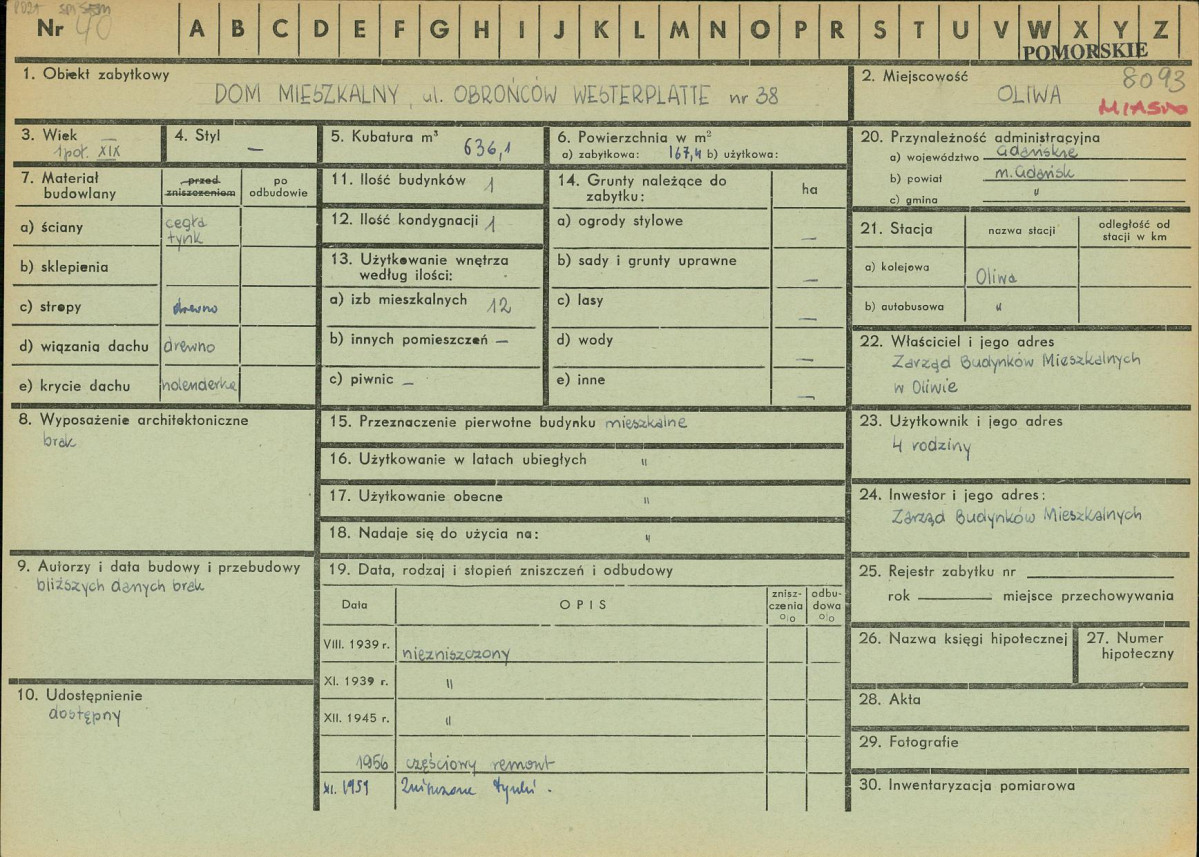 Nr 40
A B C D E F G H I J K L M N O P R S T U V W X Y Z
POMORSKIE
1. Obiekt zabytkowy
DOM MIESZKALNY, ul. OBROŃCÓW WESTERPLATTE nr 38
2. Miejscowość
8093
OLIWA
MIASTO
3. Wiek —
1 poł. XIX
4. Styl
—
5. Kubatura m³
636,1
6. Powierzchnia w m²
a) zabytkowa: 167,4 b) użytkowa:
7. Materiał budowlany
przed zniszczeniem
po odbudowie
a) ściany
cegła
tynk
b) sklepienia
c) stropy drewno
d) wiązania dachu drewno
e) krycie dachu holenderka
8. Wyposażenie architektoniczne
brak
9. Autorzy i data budowy i przebudowy
bliższych danych brak
10. Udostępnienie
dostępny
11. Ilość budynków 1
12. Ilość kondygnacji 1
13. Użytkowanie wnętrza
według ilości:
a) izb mieszkalnych 12
b) innych pomieszczeń —
c) piwnic —
14. Grunty należące do
zabytku:
ha
a) ogrody stylowe —
b) sady i grunty uprawne —
c) lasy —
d) wody —
e) inne —
15. Przeznaczenie pierwotne budynku mieszkalne
16. Użytkowanie w latach ubiegłych "
17. Użytkowanie obecne "
18. Nadaje się do użycia na: "
19. Data, rodzaj i stopień zniszczeń i odbudowy
Data
OPIS
znisz-
czenia
o/o
odbu-
dowa
o/o
VIII. 1939 r. niezniszczony
XI. 1939 r. "
XII. 1945 r. "
1956 częściowy remont
XI. 1959 Zniszczone tynki.
20. Przynależność administracyjna
a) województwo Gdańskie
b) powiat m. Gdańsk
c) gmina "
21. Stacja
nazwa stacji
odległość od
stacji w km
a) kolejowa Oliwa
b) autobusowa "
22. Właściciel i jego adres
Zarząd Budynków Mieszkalnych
w Oliwie
23. Użytkownik i jego adres
4 rodziny
24. Inwestor i jego adres:
Zarząd Budynków Mieszkalnych
25. Rejestr zabytku nr
rok miejsce przechowywania
26. Nazwa księgi hipotecznej
27. Numer
hipoteczny
28. Akta
29. Fotografie
30. Inwentaryzacja pomiarowa